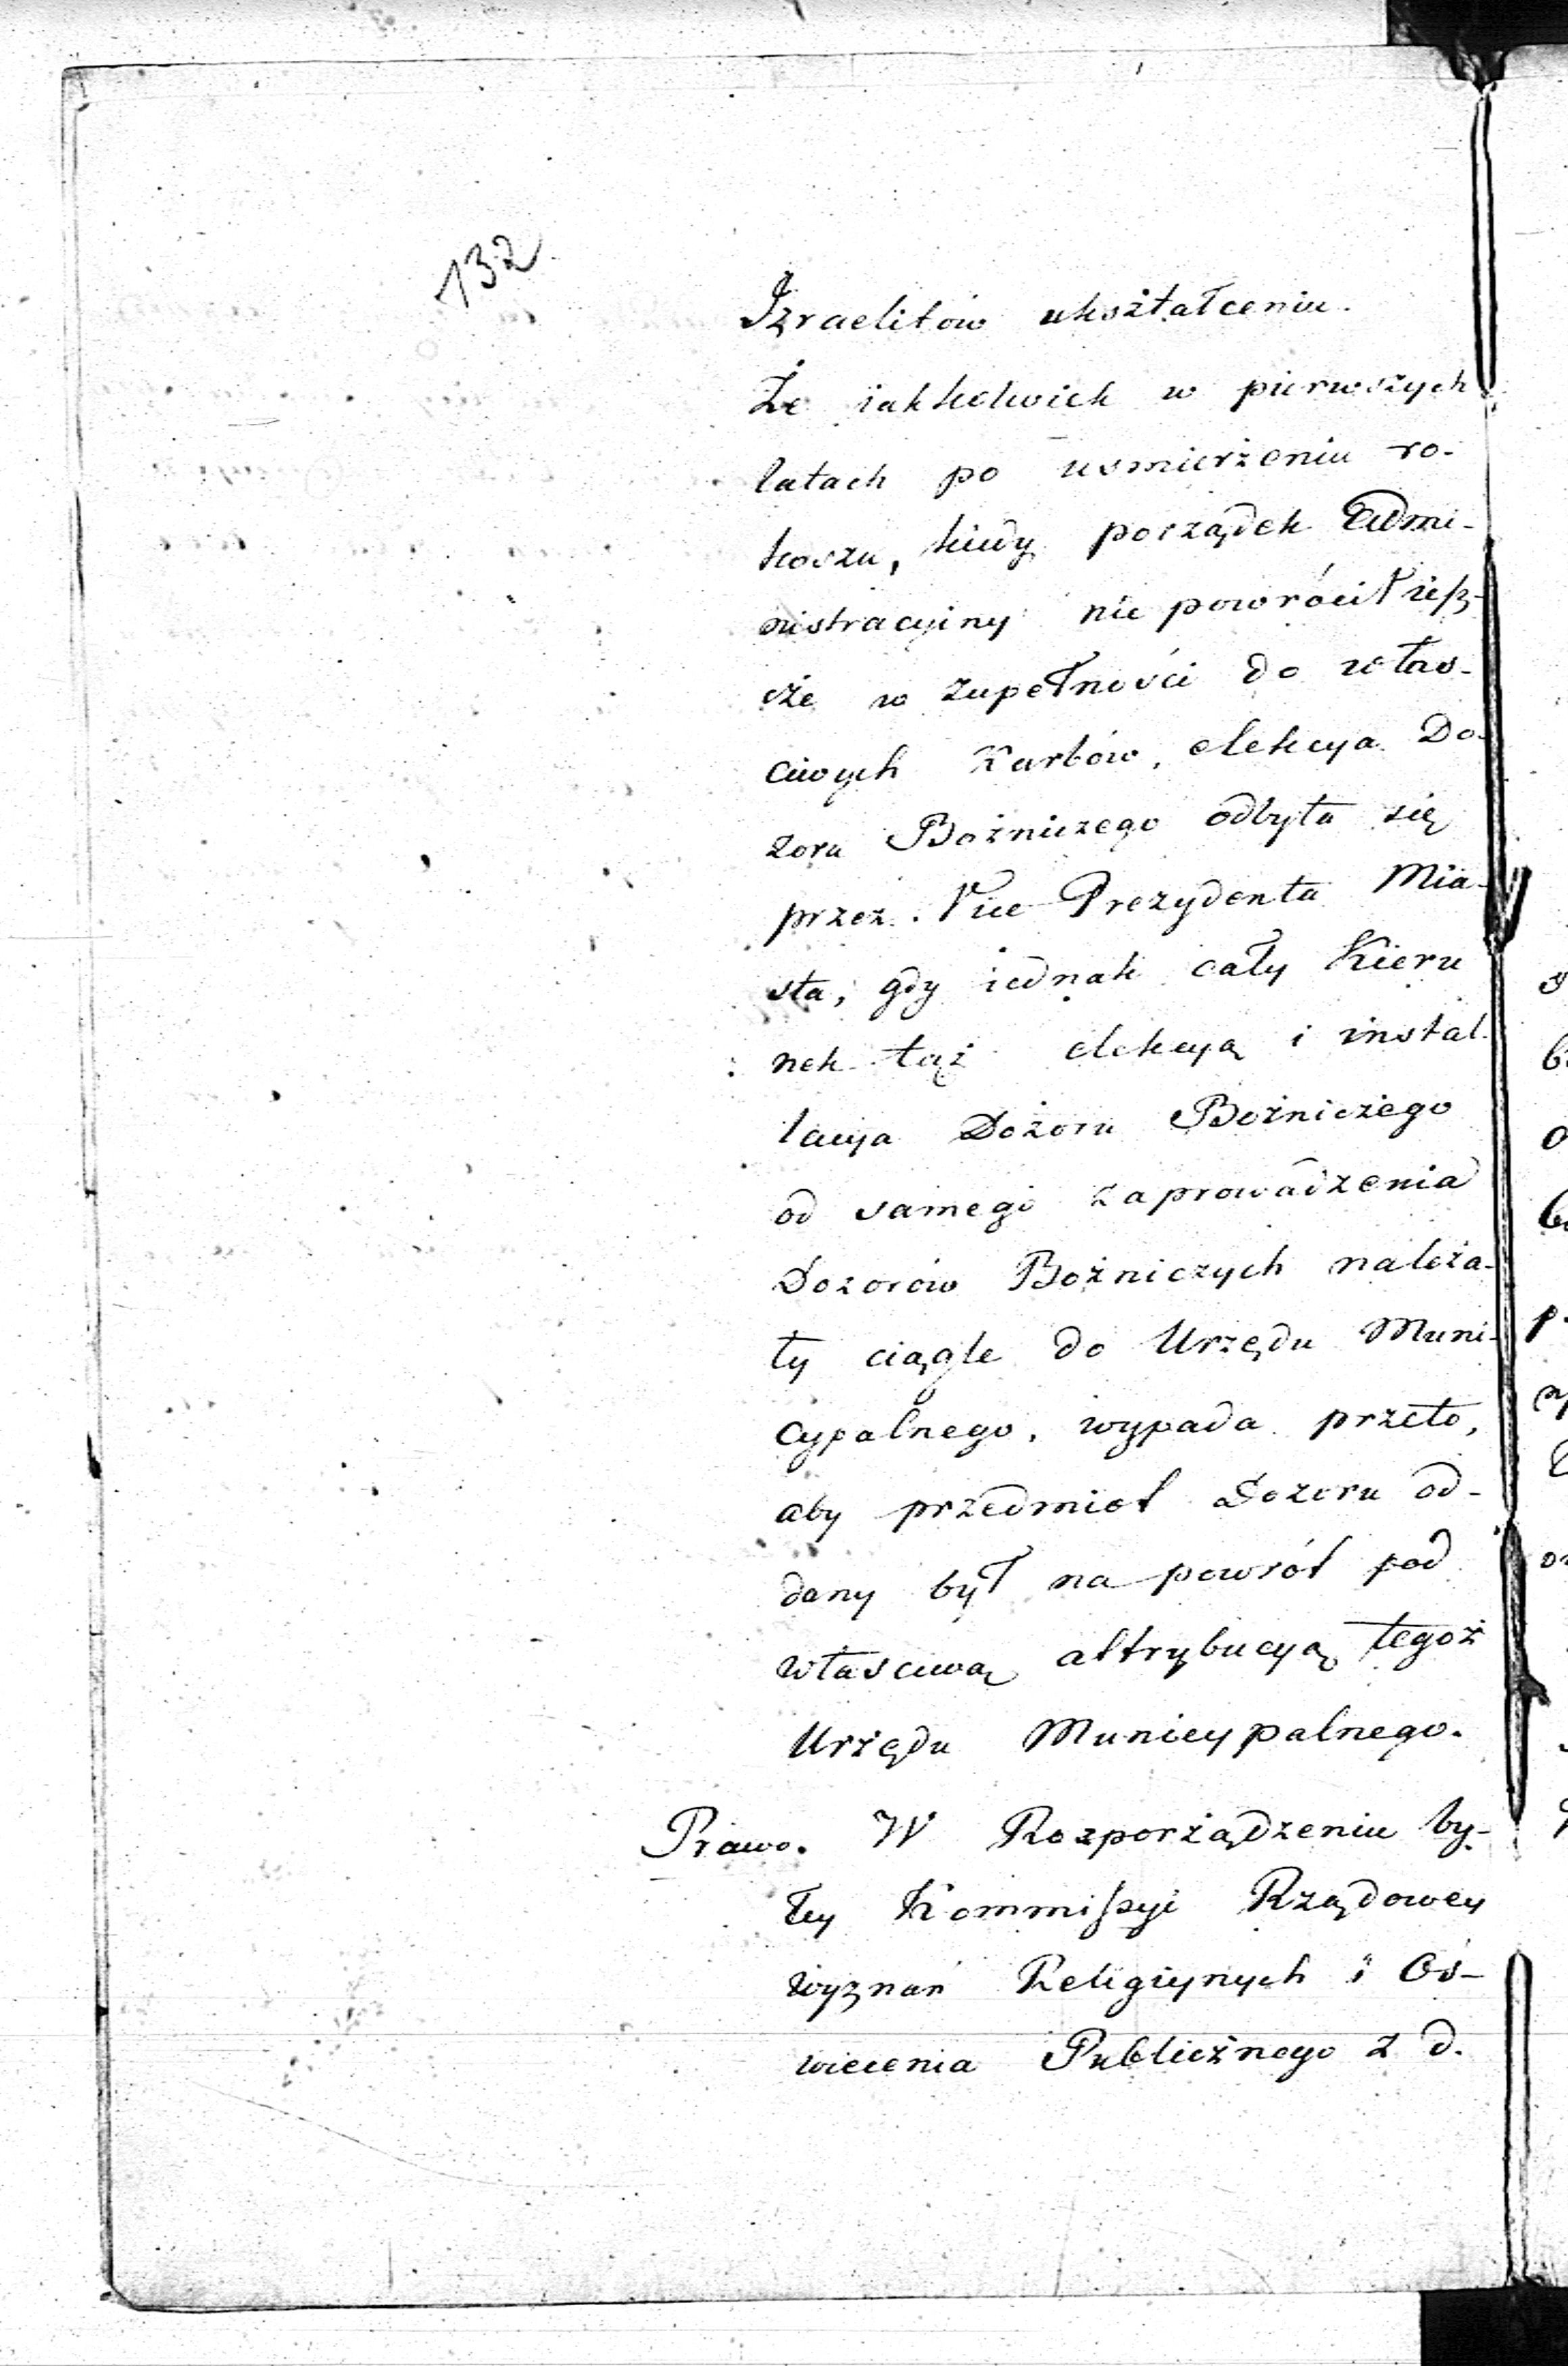 132
Izraelitów ukształceniu.
Że iakkolwiek w pierwszych
latach po usmierzeniu ro-
koszu, kiedy porządek Admi-
nistracyiny nie powrócił iesz-
cze w zupełności do włas-
ciwych karbów, elekcya Do-
zoru Bożniczego odbyła się
przez Vice Prezydenta Mia-
sta, gdy iednak cały Kieru
nek taż elekcyą i instal-
lacya Dozoru Bożniczego
od samego zaprowadzenia
Dozorów Bożniczych należa-
ły ciągle do Urzędu Muni-
cypalnego, wypada przeto,
aby przedmiot Dozoru od-
dany był na powrót pod
własciwą attrybucyą tegoż
Urzędu Municypalnego.
Prawo. W Rozporządzeniu by-
łey Kommissyi Rządowey
Wyznań Religiynych i Oś-
wiecenia Publicznego z d.